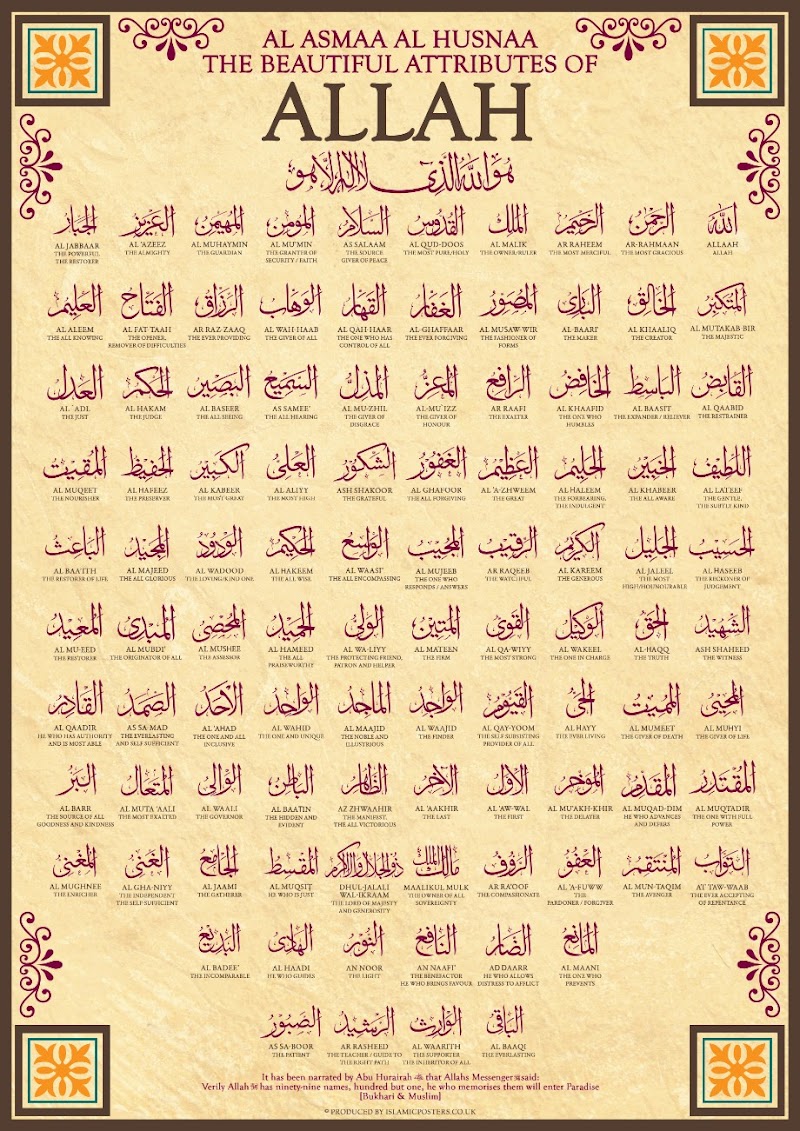 AL ASMAA AL HUSNAA
THE BEAUTIFUL ATTRIBUTES OF
ALLAH
هُوَ اللهُ الَّذِي لَا إِلٰهَ إِلَّا هُوَ
الله
ALLAAH
ALLAH
الرحمن
AR-RAHMAAN
THE MOST GRACIOUS
الرحيم
AR RAHEEM
THE MOST MERCIFUL
الملك
AL MALIK
THE OWNER/RULER
القدوس
AL QUD-DOOS
THE MOST PURE/HOLY
السلام
AS SALAAM
THE SOURCE
GIVER OF PEACE
المؤمن
AL MU'MIN
THE GRANTER OF
SECURITY / FAITH
المهيمن
AL MUHAYMIN
THE GUARDIAN
العزيز
AL 'AZEEZ
THE ALMIGHTY
الجبار
AL JABBAAR
THE POWERFUL
THE RESTORER
المتكبر
AL MUTAKAB-BIR
THE MAJESTIC
الخالق
AL KHAALIQ
THE CREATOR
البارئ
AL-BAARI'
THE MAKER
المصور
AL MUSAW-WIR
THE FASHIONER OF
FORMS
الغفار
AL-GHAFFAAR
THE EVER FORGIVING
القهار
AL QAH-HAAR
THE ONE WHO HAS
CONTROL OF ALL
الوهاب
AL WAH-HAAB
THE GIVER OF ALL
الرزاق
AR RAZ-ZAAQ
THE EVER PROVIDING
الفتاح
AL FAT-TAAH
THE OPENER,
REMOVER OF DIFFICULTIES
العليم
AL ALEEM
THE ALL KNOWING
القابض
AL QAABID
THE RESTRAINER
الباسط
AL BAASIT
THE EXPANDER / RELIEVER
الخافض
AL KHAAFID
THE ONE WHO
HUMBLES
الرافع
AR RAAFI
THE EXALTER
المعز
AL-MU`IZZ
THE GIVER OF
HONOUR
المذل
AL MU-ZHIL
THE GIVER OF
DISGRACE
السميع
AS SAMEE
THE ALL HEARING
البصير
AL BASEER
THE ALL SEEING
الحكم
AL HAKAM
THE JUDGE
العدل
AL `ADL
THE JUST
اللطيف
AL LATEEF
THE GENTLE,
THE SUBTLY KIND
الخبير
AL KHABEER
THE ALL AWARE
الحليم
AL HALEEM
THE FORBEARING,
THE INDULGENT
العظيم
AL 'A-ZHWEEM
THE GREAT
الغفور
AL GHAFOOR
THE ALL FORGIVING
الشكور
ASH SHAKOOR
THE GRATEFUL
العلي
AL ALIYY
THE MOST HIGH
الكبير
AL KABEER
THE MOST GREAT
الحفيظ
AL HAFEEZ
THE PRESERVER
المقيت
AL MUQEET
THE NOURISHER
الحسيب
AL HASEEB
THE RECKONER OF
JUDGEMENT
الجليل
AL JALEEL
THE MOST
HIGH/HOUNOURABLE
الكريم
AL KAREEM
THE GENEROUS
الرقيب
AR RAQEEB
THE WATCHFUL
المجيب
AL MUJEEB
THE ONE WHO
RESPONDS / ANSWERS
الواسع
AL WAASI'
THE ALL ENCOMPASSING
الحكيم
AL HAKEEM
THE ALL WISE
الودود
AL WADOOD
THE LOVING/KIND ONE
المجيد
AL MAJEED
THE ALL GLORIOUS
الباعث
AL BAA'ITH
THE RESTORER OF LIFE
الشهيد
ASH SHAHEED
THE WITNESS
الحق
AL-HAQQ
THE TRUTH
الوكيل
AL WAKEEL
THE ONE IN CHARGE
القوي
AL QA-WIYY
THE MOST STRONG
المتين
AL MATEEN
THE FIRM
الولي
AL WA-LIYY
THE PROTECTING FRIEND,
PATRON AND HELPER
الحميد
AL HAMEED
THE ALL
PRAISEWORTHY
المحصي
AL MUSHEE
THE ASSESSOR
المبدئ
AL MUBDI'
THE ORIGINATOR OF ALL
المعيد
AL MU-EED
THE RESTORER
المحيي
AL MUHYI
THE GIVER OF LIFE
المميت
AL MUMEET
THE GIVER OF DEATH
الحي
AL HAYY
THE EVER LIVING
القيوم
AL QAY-YOOM
THE SELF SUBSISTING
PROVIDER OF ALL
الواجد
AL WAAJID
THE FINDER
الماجد
AL MAAJID
THE NOBLE AND
ILLUSTRIOUS
الواحد
AL WAHID
THE ONE AND UNIQUE
الاحد
AL 'AHAD
THE ONE AND ALL
INCLUSIVE
الصمد
AS SA-MAD
THE EVERLASTING
AND SELF SUFFICIENT
القادر
AL QAADIR
HE WHO HAS AUTHORITY
AND IS MOST ABLE
المقتدر
AL MUQTADIR
THE ONE WITH FULL
POWER
المقدم
AL MUQAD-DIM
HE WHO ADVANCES
AND DEFERS
المؤخر
AL MU'AKH-KHIR
THE DELATER
الاول
AL 'AW-WAL
THE FIRST
الاخر
AL 'AAKHIR
THE LAST
الظاهر
AZ ZHWAAHIR
THE MANIFEST,
THE ALL VICTORIOUS
الباطن
AL BAATIN
THE HIDDEN AND
EVIDENT
الوالي
AL WAALI
THE GOVERNOR
المتعال
AL MUTA 'AALI
THE MOST EXALTED
البر
AL BARR
THE SOURCE OF ALL
GOODNESS AND KINDNESS
التواب
AT TAW-WAAB
THE EVER ACCEPTING
OF REPENTANCE
المنتقم
AL MUN-TAQIM
THE AVENGER
العفو
AL 'A-FUWW
THE
PARDONER / FORGIVER
الرؤوف
AR RA'OOF
THE COMPASSIONATE
مالك الملك
MAALIKUL MULK
THE OWNER OF ALL
SOVEREIGNTY
ذو الجلال والاكرام
DHUL-JALALI
WAL-IKRAAM
THE LORD OF MAJESTY
AND GENEROSITY
المقسط
AL MUQSIT
HE WHO IS JUST
الجامع
AL JAAMI
THE GATHERER
الغني
AL GHA-NIYY
THE INDEPENDENT
THE SELF SUFFICIENT
المغني
AL MUGHNEE
THE ENRICHER
المانع
AL MAANI
THE ONE WHO
PREVENTS
الضار
AD DAARR
HE WHO ALLOWS
DISTRESS TO AFFLICT
النافع
AN NAAFI'
THE BENEFACTOR
HE WHO BRINGS FAVOUR
النور
AN NOOR
THE LIGHT
الهادي
AL HAADI
HE WHO GUIDES
البديع
AL BADEE'
THE INCOMPARABLE
الباقي
AL BAAQI
THE EVERLASTING
الوارث
AL WAARITH
THE SUPPORTER
THE INHERITOR OF ALL
الرشيد
AR RASHEED
THE TEACHER / GUIDE TO
THE RIGHT PATH
الصبور
AS SA-BOOR
THE PATIENT
It has been narrated by Abu Hurairah that Allahs Messenger ﷺ said:
Verily Allah has ninety-nine names, hundred but one, he who memorises them will enter Paradise
[Bukhari & Muslim]
© PRODUCED BY ISLAMICPOSTERS.CO.UK